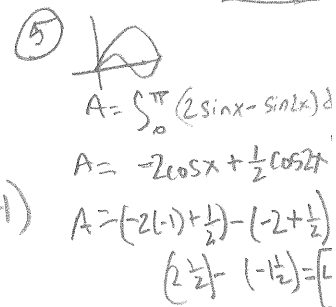 5
A = ∫₀^π (2sinx - sin2x) d
A = -2cosx + 1/2 cos2x
-1) A = (-2(-1) + 1/2) - (-2 + 1/2)
(2 1/2) - (-1 1/2) =